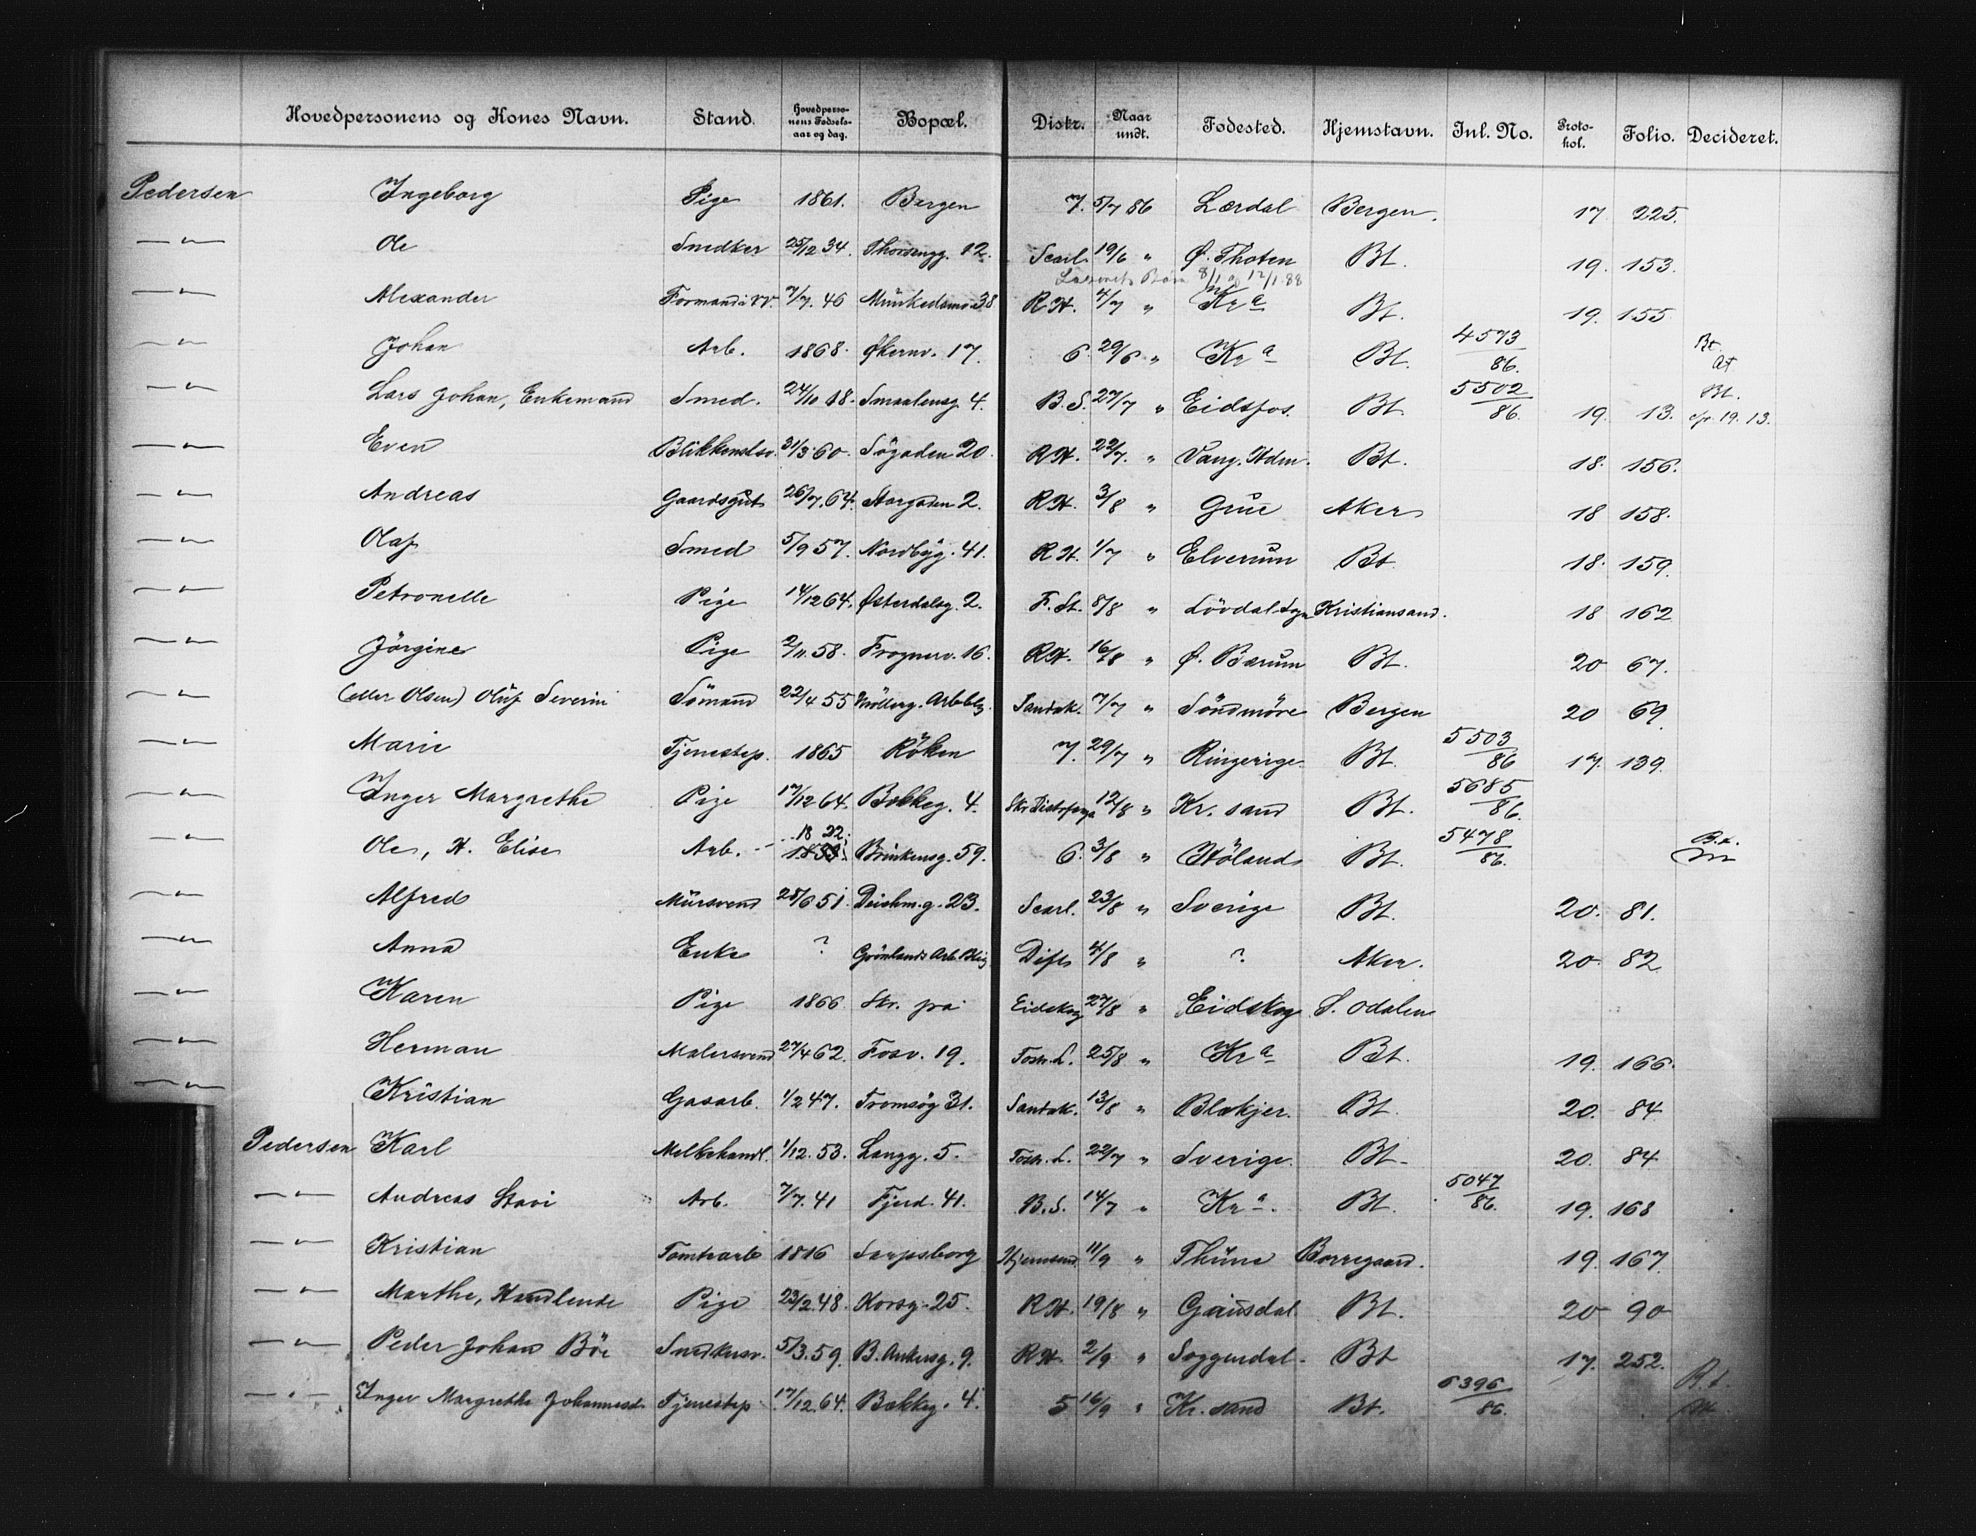 Hovedpersonens og Kones Navn. Stand. Hovedpersonens Fødselsaar og dag. Bopæl. Distr. Naar undt. Fødested. Hjemstavn. Inl. No. Protokol. Folio. Decideret.
Pedersen Ingeborg Pige 1861. Bergen 7. 5/7 86 Lærdal Bergen. 17 225.
—"— Ole Snedker 25/12 34. Thorsengg. 12. Scarl. 19/6 " Ø. Thoten Bt. 19. 153.
8/1 og 12/1 88
—"— Alexander Formand i VV. 7/7. 46 Munkedamsv. 38 R.H. 4/7 " Kra Bt. 19. 155
—"— Johan Arb. 1868. Økernv. 17. 6. 29/6 " Kra Bt. 4573/86. Bt. At
—"— Lars Johan, Enkemand Smed. 24/10 18. Smaalensg 4. B.S. 27/7 " Eidsfos. Bt 5502/86. 19. 13. Bt. cfr. 19. 13.
—"— Even Blikkenslsv. 31/3 60. Søgaden 20. R.H. 22/7. " Vang. Hdm. Bt. 18. 156.
—"— Andreas Gaardsgut 26/7. 64. Storgaden 2. R.H. 3/8 " Grue Aker 18 158.
—"— Olaf Smed 5/9 57. Nordbyg. 41. R.H. 1/7 " Elverum Bt. 18. 159.
—"— Petronelle Pige 14/12 64. Østerdalsg. 2. F. St. 8/8 " Lövdal Sogn Kristiansand. 18 162
—"— Jörgine Pige 2/11. 58. Frognerv. 16. R.H. 16/8 " Ø. Bærum Bt. 20 67.
—"— (eller Olsen) Oluf Severin Sömand 22/4 55 Mollerg. Arbeblg. Sandak. 7/7 " Söndmöre Bergen 20 69
—"— Marie Tjenestep. 1865 Röken 7. 29/7 " Ringerige. Bt. 5503/86 17. 139.
—"— Inger Margrethe Pige 17/12 64. Bækkeg. 4. 12/8 " Kr. sand Bt. 5685/86.
—"— Ole, H. Elise Arb. 1822. Brinkensg. 59. 6. 3/8 " Höland Bt. 5478/86. Bt.
—"— Alfred Mursvend 28/6 51. Deichm.g. 23. Scarl. 23/8 " Sverige Bt. 20. 81.
—"— Anna Enke ? Grønlands Arb. Blig Difts 4/8 " ? Aker. 20. 82
—"— Karen Pige 1866 Skr. fra Eidskog 27/8 " Eidskog S. Odalen
—"— Herman Malersvend 27/4 62. Fosv. 19. Tostr. L. 25/8 " Kra Bt. 19. 166.
—"— Kristian Gasarb. 1/2 47. Tromsög 31. Sandak. 13/8 " Blakjer. Bt. 20. 84
Pedersen Karl Melkehandl. 1/12. 53. Langg. 5. Tostr. L. 22/7 " Sverige. Bt. 20. 84
—"— Andreas Stavi Arb. 7/7. 41 Fjerd. 41. B.S. 14/7 " Kra. Bt. 5047/86. 19. 168
—"— Kristian Tomtearb 1816 Sarpsborg Hjemsend. 11/9 " Thune Borregaard. 19. 167.
—"— Marthe, Handlende Pige 23/2. 48. Korsg. 25. R.H. 19/8 " Gausdal Bt. 20 90
—"— Peder Johan Böe Snedkersv. 5/3. 59. B. Ankersg. 9. R.H. 2/9 " Soggendal. Bt 17. 252.
—"— Inger Margrethe Johannesd. Tjenestep 17/12. 64. Bækkeg. 4. 5 16/9 " Kr. sand Bt. 6396/86. Bt.